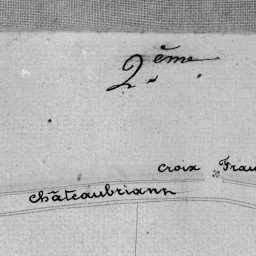 2ème
Croix
Châteaubriann